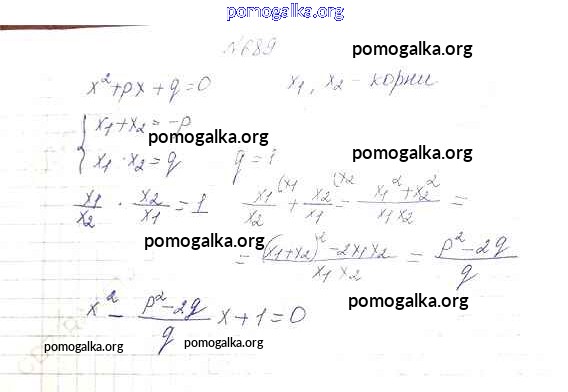 pomogalka.org
№689
pomogalka.org
x²+px+q=0 x₁, x₂ - корни
x₁+x₂=-p
pomogalka.org
x₁·x₂=q q=1
pomogalka.org
x₁/x₂ · x₂/x₁ = 1 x₁/x₂ (x₁ + x₂/x₁ (x₂ = x₁²+x₂²/x₁x₂ =
pomogalka.org
= (x₁+x₂)²-2x₁x₂/x₁x₂ = p²-2q/q
pomogalka.org
x² - p²-2q/q x+1=0
pomogalka.org
pomogalka.org